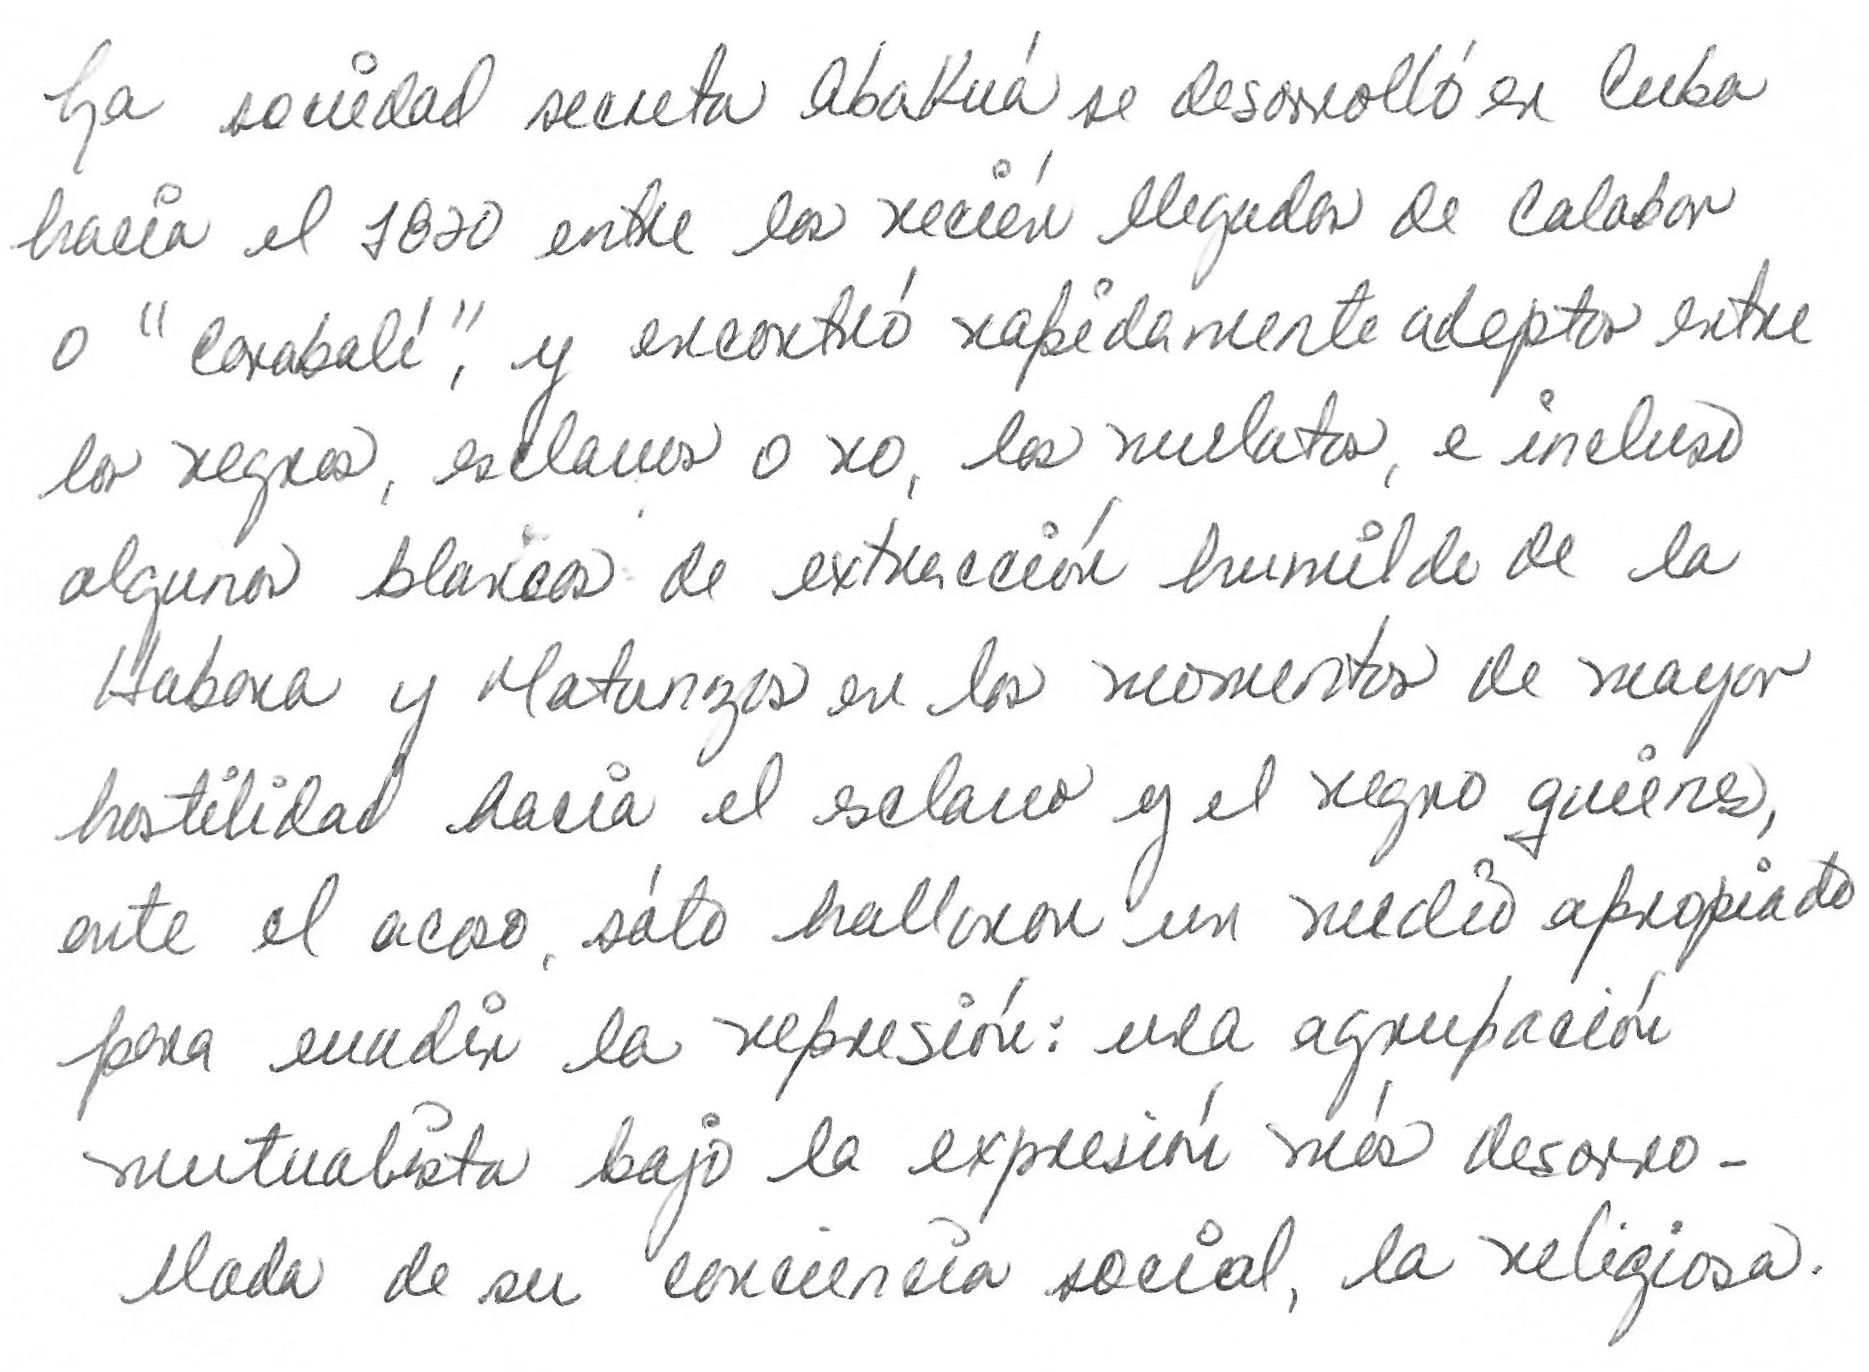 La sociedad secreta Abakuá se desarrolló en Cuba
hacia el 1820 entre los recién llegados de Calabar
o "Carabalí", y encontró rapidamente adeptos entre
los negros, esclavos o no, los mulatos, e incluso
algunos blancos de extracción humilde de la
Habana y Matanzas en los momentos de mayor
hostilidad hacia el esclavo y el negro quienes,
ante el acoso, sólo hallaron un medio apropiado
para evadir la represión: una agrupación
mutualista bajo la expresión más desarro-
llada de su conciencia social, la religiosa.